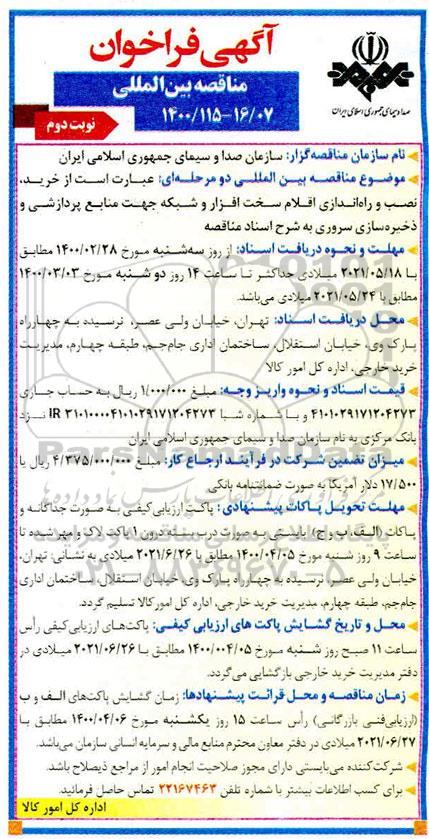 صدا و سیمای جمهوری اسلامی ایران
آگهی فراخوان
مناقصه بین المللی
۱۴۰۰/۱۱۵-۱۶/۰۷
نوبت دوم
نام سازمان مناقصه‌گزار: سازمان صدا و سیمای جمهوری اسلامی ایران
موضوع مناقصه بین المللی دو مرحله‌ای: عبارت است از خرید،
نصب و راه‌اندازی اقلام سخت افزار و شبکه جهت منابع پردازشی و
ذخیره‌سازی سروری به شرح اسناد مناقصه
مهلت و نحوه دریافت اسناد: از روز سه‌شنبه مورخ ۱۴۰۰/۰۲/۲۸ مطابق
با ۲۰۲۱/۰۵/۱۸ میلادی حداکثر تا ساعت ۱۴ روز دو شنبه مورخ ۱۴۰۰/۰۳/۰۳
مطابق با ۲۰۲۱/۰۵/۲۴ میلادی می‌باشد.
محل دریافت اسناد: تهران، خیابان ولی عصر، نرسیده به چهارراه
پارک وی، خیابان استقلال، ساختمان اداری جام‌جم، طبقه چهارم، مدیریت
خرید خارجی، اداره کل امور کالا
قیمت اسناد و نحوه واریز وجه: مبلغ ۱/۰۰۰/۰۰۰ ریال به حساب جاری
۴۱۰۱۰۲۹۱۷۱۲۰۴۲۷۳ و با شماره شبا IR ۳۱۰۱۰۰۰۰۴۱۰۱۰۲۹۱۷۱۲۰۴۲۷۳ نزد
بانک مرکزی به نام سازمان صدا و سیمای جمهوری اسلامی ایران
میزان تضمین شرکت در فرآیند ارجاع کار: مبلغ ۴/۳۷۵/۰۰۰/۰۰۰ ریال یا
۱۷/۵۰۰ دلار آمریکا به صورت ضمانتنامه بانکی
مهلت تحویل پاکات پیشنهادی: پاکت ارزیابی کیفی به صورت جداگانه و
پاکات (الف، ب و ج) بایستی به صورت دربسته درون ۱ پاکت لاک و مهر شده تا
ساعت ۹ روز شنبه مورخ ۱۴۰۰/۰۴/۰۵ مطابق با ۲۰۲۱/۶/۲۶ میلادی به نشانی: تهران،
خیابان ولی عصر، نرسیده به چهارراه پارک وی، خیابان استقلال، ساختمان اداری
جام‌جم، طبقه چهارم، مدیریت خرید خارجی، اداره کل امور کالا تسلیم گردد.
محل و تاریخ گشایش پاکت های ارزیابی کیفی: پاکت‌های ارزیابی کیفی رأس
ساعت ۱۱ صبح روز شنبه مورخ ۱۴۰۰/۰۰۴/۰۵ مطابق با ۲۰۲۱/۰۶/۲۶ میلادی در
دفتر مدیریت خرید خارجی بازگشایی می‌گردد.
زمان مناقصه و محل قرائت پیشنهادها: زمان گشایش پاکت‌های الف و ب
(ارزیابی‌فنی بازرگانی) رأس ساعت ۱۵ روز یکشنبه مورخ ۱۴۰۰/۰۴/۰۶ مطابق با
۲۰۲۱/۰۶/۲۷ میلادی در دفتر معاون محترم منابع مالی و سرمایه انسانی سازمان می‌باشد.
شرکت‌کننده می‌بایستی دارای مجوز صلاحیت انجام امور از مراجع ذیصلاح باشد.
برای کسب اطلاعات بیشتر با شماره تلفن ۲۲۱۶۷۴۶۳ تماس حاصل فرمائید.
اداره کل امور کالا